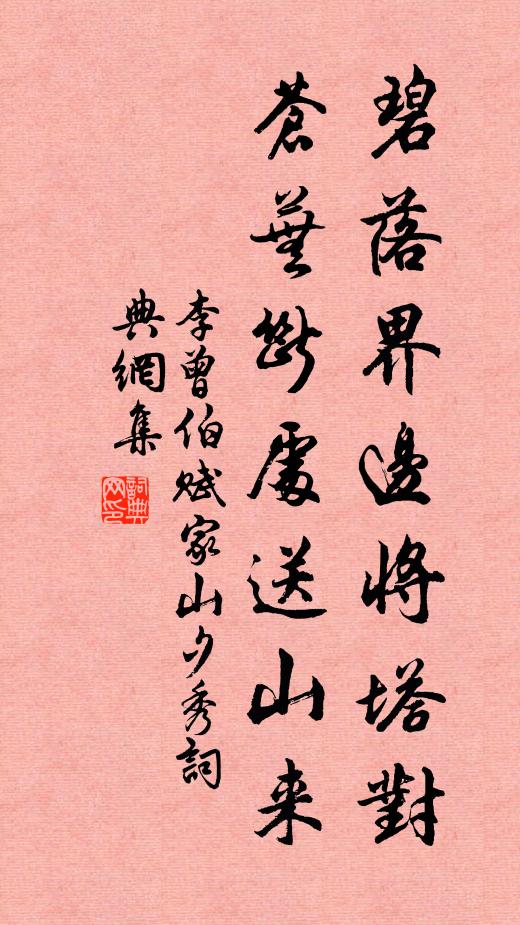 碧落界邊將塔對
蒼蕪斷處送山来
李曾伯賦家山夕秀詞
典網集
詞典网印